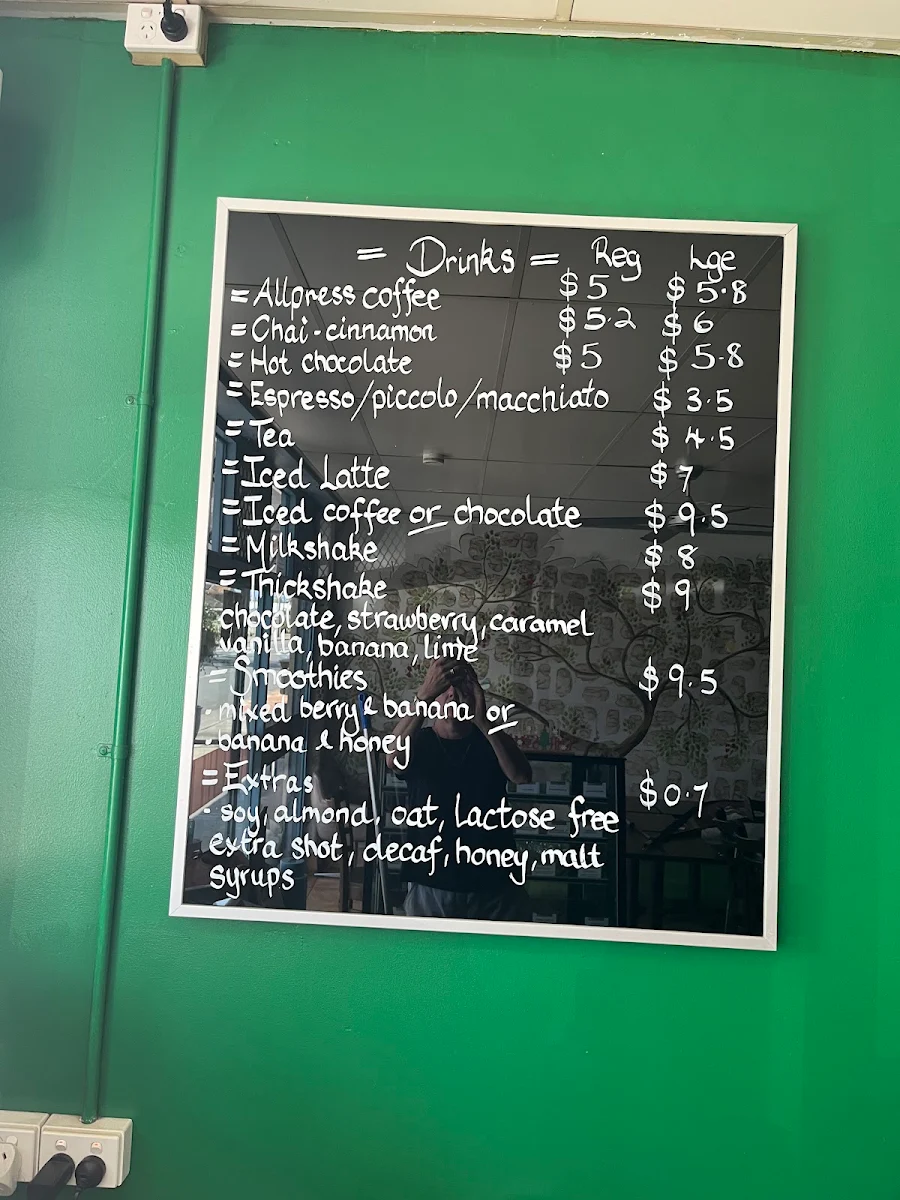 = Drinks = Reg Lge
= Allpress coffee $5 $5.8
= Chai-cinnamon $5.2 $6
= Hot chocolate $5 $5.8
= Espresso/piccolo/macchiato $3.5
= Tea $4.5
= Iced Latte $7
= Iced coffee or chocolate $9.5
= Milkshake $8
= Thickshake $9
chocolate, strawberry, caramel
vanilla, banana, lime
= Smoothies $9.5
· mixed berry & banana or
· banana & honey
= Extras $0.7
· soy, almond, oat, Lactose free
extra shot, decaf, honey, malt
syrups